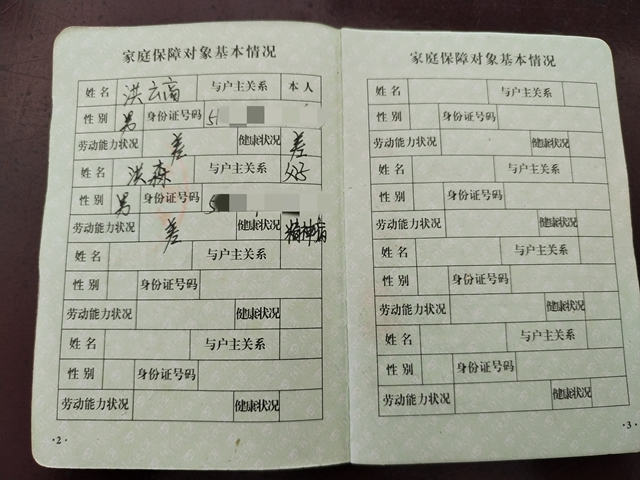 家庭保障对象基本情况
姓名 洪云高 与户主关系 本人
性别 男 身份证号码 51
劳动能力状况 差 健康状况 差
姓名 洪森 与户主关系 父子
性别 男 身份证号码 5
劳动能力状况 差 健康状况 精神病
姓名 与户主关系
性别 身份证号码
劳动能力状况 健康状况
姓名 与户主关系
性别 身份证号码
劳动能力状况 健康状况
·2·
家庭保障对象基本情况
姓名 与户主关系
性别 身份证号码
劳动能力状况 健康状况
姓名 与户主关系
性别 身份证号码
劳动能力状况 健康状况
姓名 与户主关系
性别 身份证号码
劳动能力状况 健康状况
姓名 与户主关系
性别 身份证号码
劳动能力状况 健康状况
·3·